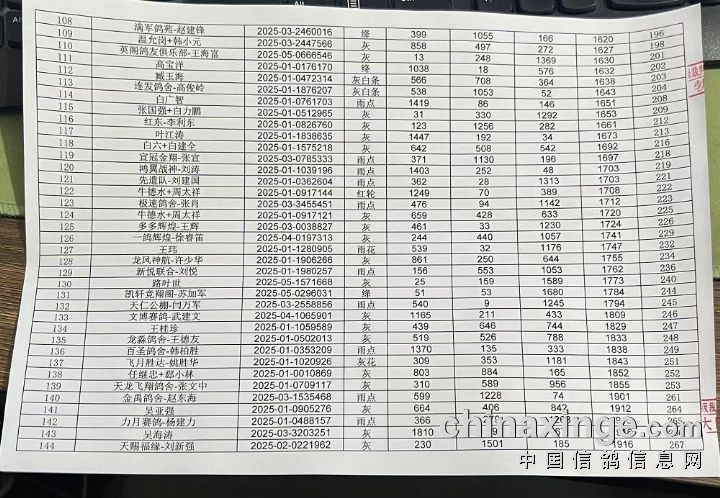 108 满军鸽苑-赵建锋 2025-03-2460016 绛 399 1055 166 1620 196
109 温允岗+韩小元 2025-03-2447566 灰 858 497 272 1627 198
110 英阁鸽友俱乐部-王海富 2025-05-0666546 灰 13 248 1369 1630 201
111 高宝洋 2025-01-0176170 绛 1038 18 576 1632 202
112 臧玉海 2025-01-0472314 灰白条 566 708 364 1638 203
113 连发鸽舍-高俊岭 2025-01-1876207 灰白条 538 1053 52 1643 204
114 白广智 2025-01-0761703 雨点 1419 86 146 1651 208
115 张国强+白力鹏 2025-01-0512965 灰 31 330 1292 1653 209
116 红东-李利东 2025-01-0826760 灰 123 1256 282 1661 212
117 叶江涛 2025-01-1838635 灰 1447 192 34 1673 213
118 白六+白建全 2025-01-1575218 灰 642 508 542 1692
119 宣冠金翔-张宣 2025-03-0785333 雨点 371 1130 196 1697 218
120 鸿翼战神-刘涛 2025-01-1039196 雨点 1403 252 48 1703 219
121 先遣队-刘建国 2025-01-0362604 雨点 362 28 1313 1703 221
122 牛德水+周太祥 2025-01-0917144 红轮 1249 70 389 1708 222
123 极速鸽舍-张肖 2025-03-3455451 雨点 476 94 1142 1712 224
124 牛德水+周太祥 2025-01-0917121 灰 659 428 633 1720 225
125 多多辉煌-王辉 2025-03-0038827 灰 461 33 1230 1724 226
126 一鸽辉煌-徐睿笛 2025-04-0197313 灰 244 440 1057 1741 229
127 王玮 2025-01-1280905 雨花 539 32 1176 1747 232
128 龙凤神航-许少华 2025-01-1906266 灰 861 250 644 1755 234
129 新悦联合-刘悦 2025-01-1980257 雨点 156 553 1053 1762 235
130 路叶世 2025-05-1571668 灰 25 159 1589 1773 237
131 凯轩竞翔阁-苏加军 2025-05-0296031 绛 51 53 1680 1784 244
132 天仁公棚-闫万军 2025-03-2558856 雨点 540 9 1245 1794 245
133 文博赛鸽-武建文 2025-04-1065901 灰 1165 211 433 1809 246
134 王桂珍 2025-01-1059589 灰 439 646 744 1829 247
135 龙淼鸽舍-王德友 2025-01-0502013 灰 519 526 788 1833 248
136 百圣鸽舍-韩柏胜 2025-01-0353209 雨点 1370 135 333 1838 249
137 飞月胜达-姚胜华 2025-01-1020926 灰花 309 353 1181 1843 251
138 任继忠+郄小林 2025-01-0010869 灰 803 884 165 1852 252
139 天龙飞翔鸽舍-张文中 2025-01-0709117 灰 310 589 956 1855 253
140 金禹鸽舍-赵东海 2025-03-1535468 雨点 599 1228 74 1901 261
141 吴亚强 2025-01-0905276 灰 664 406 842 1912 264
142 力月赛鸽-杨建力 2025-01-0488157 雨点 366 265
143 吴海涛 2025-03-3203251 灰 1810 9
144 天赐福缘-刘新强 2025-02-0221962 灰 230 1501 185 1916 267
chinaxinge.com
中国信鸽信息网